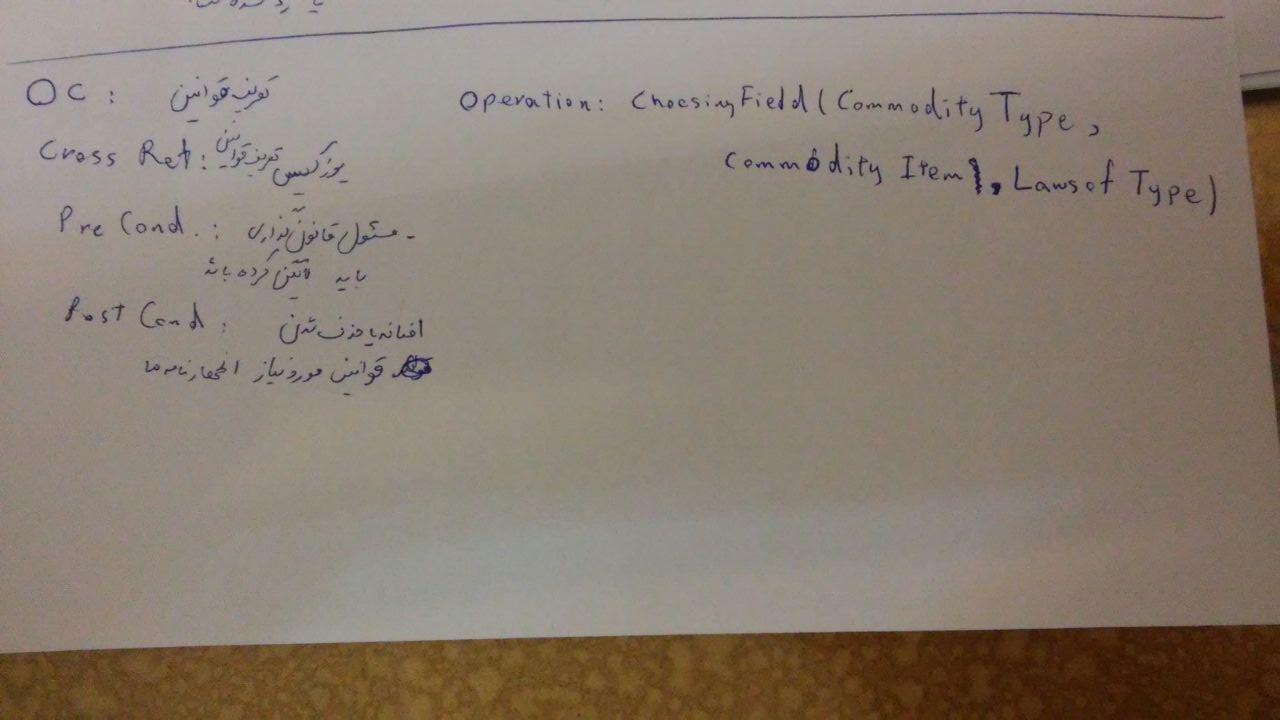 OC : تعریف قوانین
Cross Ref : یوزکیس تعریف قوانین
Pre Cond. : - مسئول قانون گذاری
باید لاگین کرده باشد
Post Cond : اضافه یا حذف شدن
قوانین مورد نیاز اظهارنامه ها
Operation: Choosing Field ( Commodity Type ,
Commodity Item , Laws of Type )